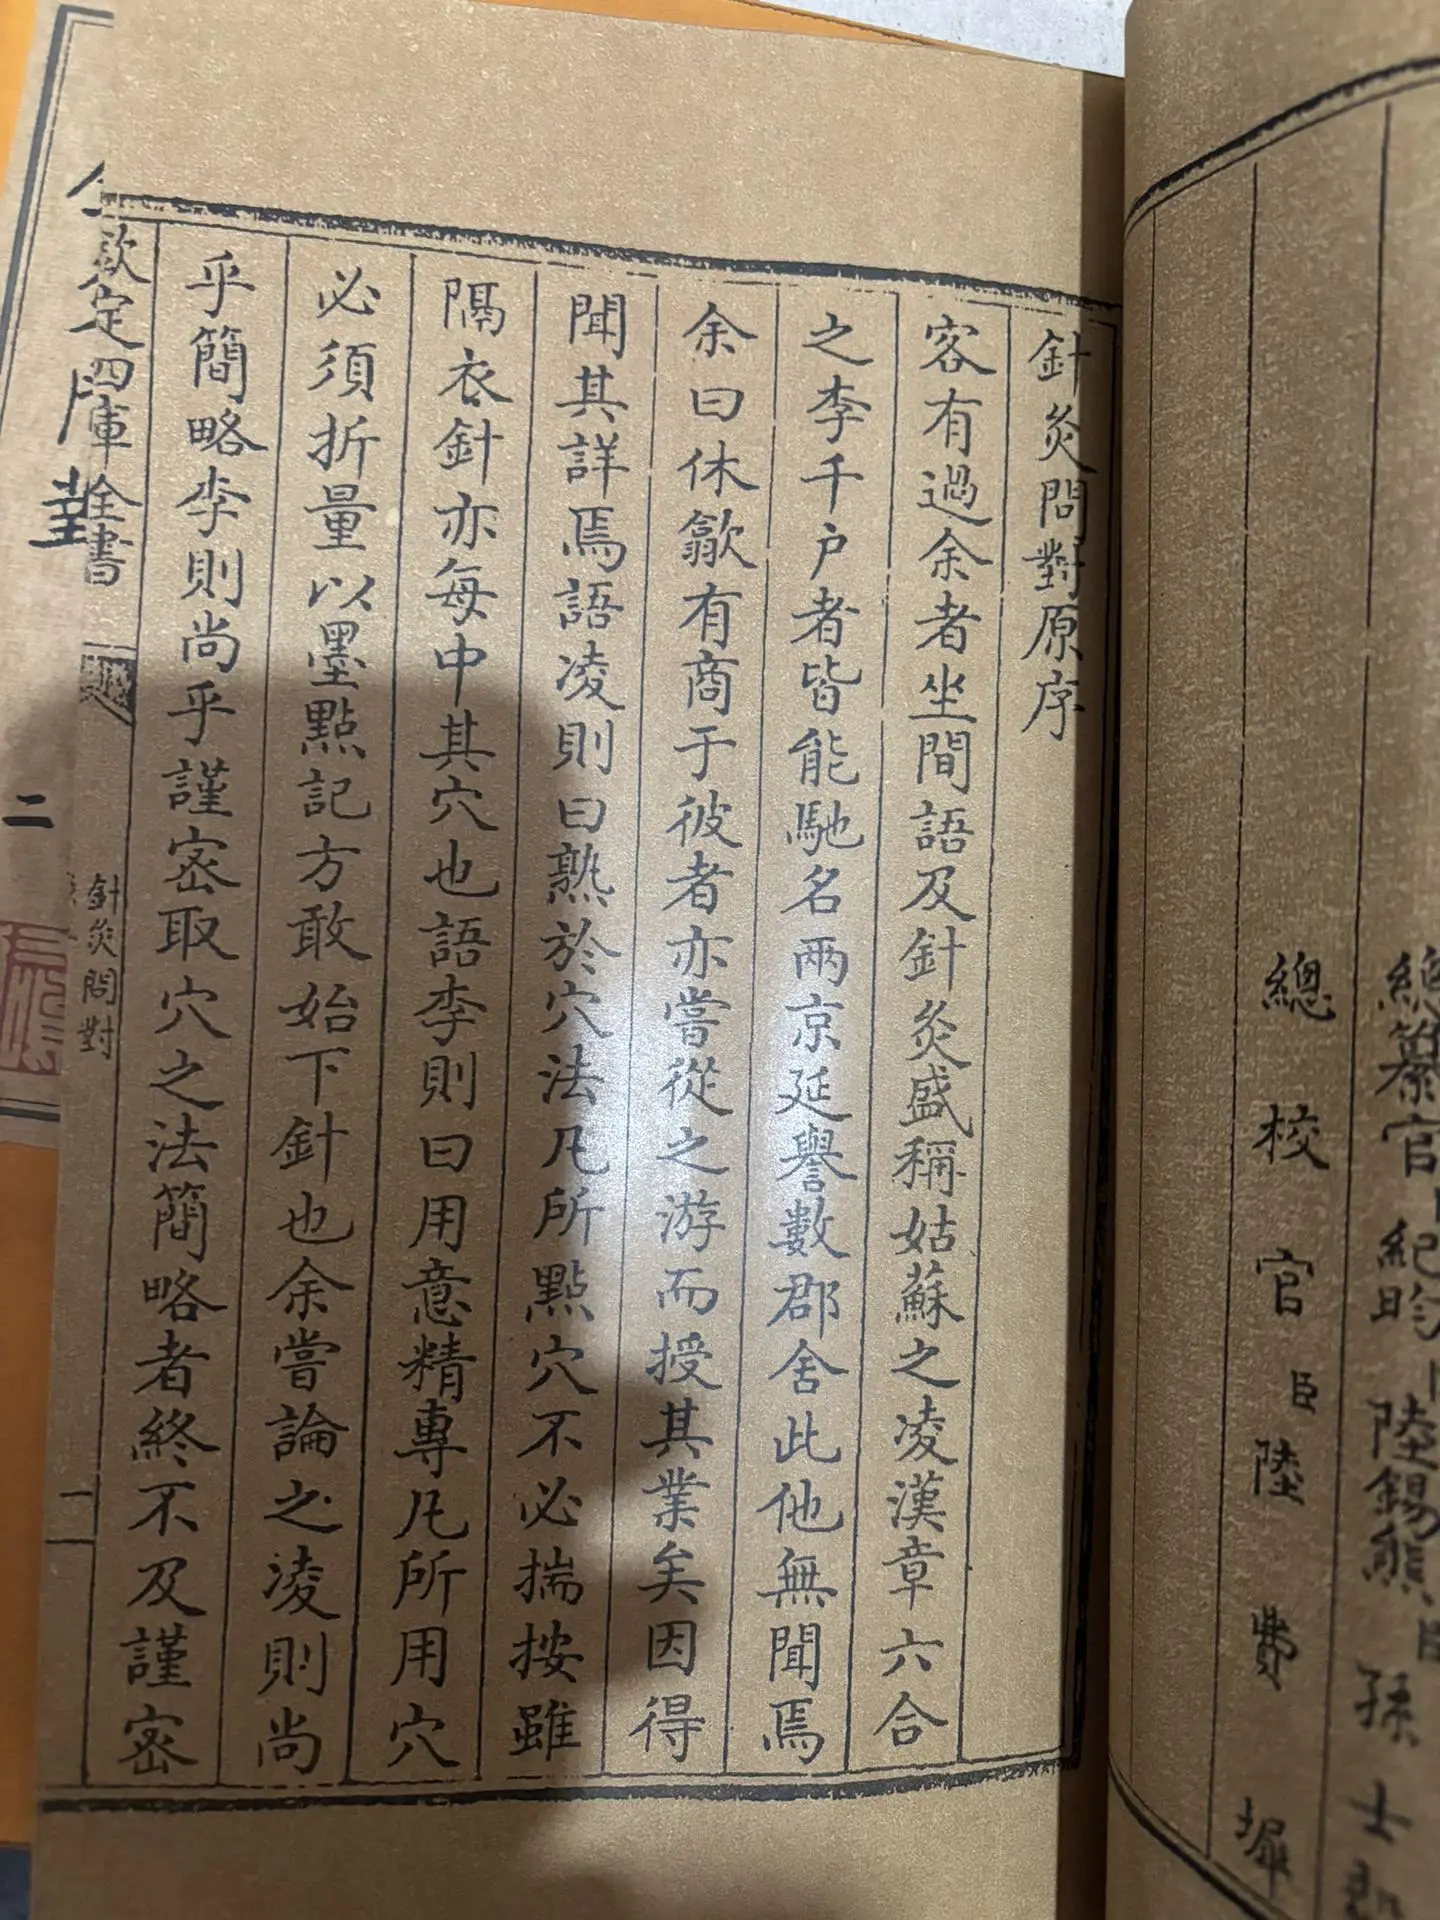 總纂官
紀昀
陸錫熊
孫士
總校官臣陸費墀
針灸問對原序
客有過余者坐間語及針灸盛稱姑蘇之凌漢章六合
之李千户者皆能馳名兩京延譽數郡舍此他無聞焉
余曰休歙有商于彼者亦嘗從之游而授其業矣因得
聞其詳焉語凌則曰熟於穴法凡所點穴不必揣按雖
隔衣針亦每中其穴也語李則曰用意精專凡所用穴
必須折量以墨點記方敢始下針也余嘗論之凌則尚
乎簡略李則尚乎謹宻取穴之法簡略者終不及謹宻
欽定四庫全書
針灸問對
一
二